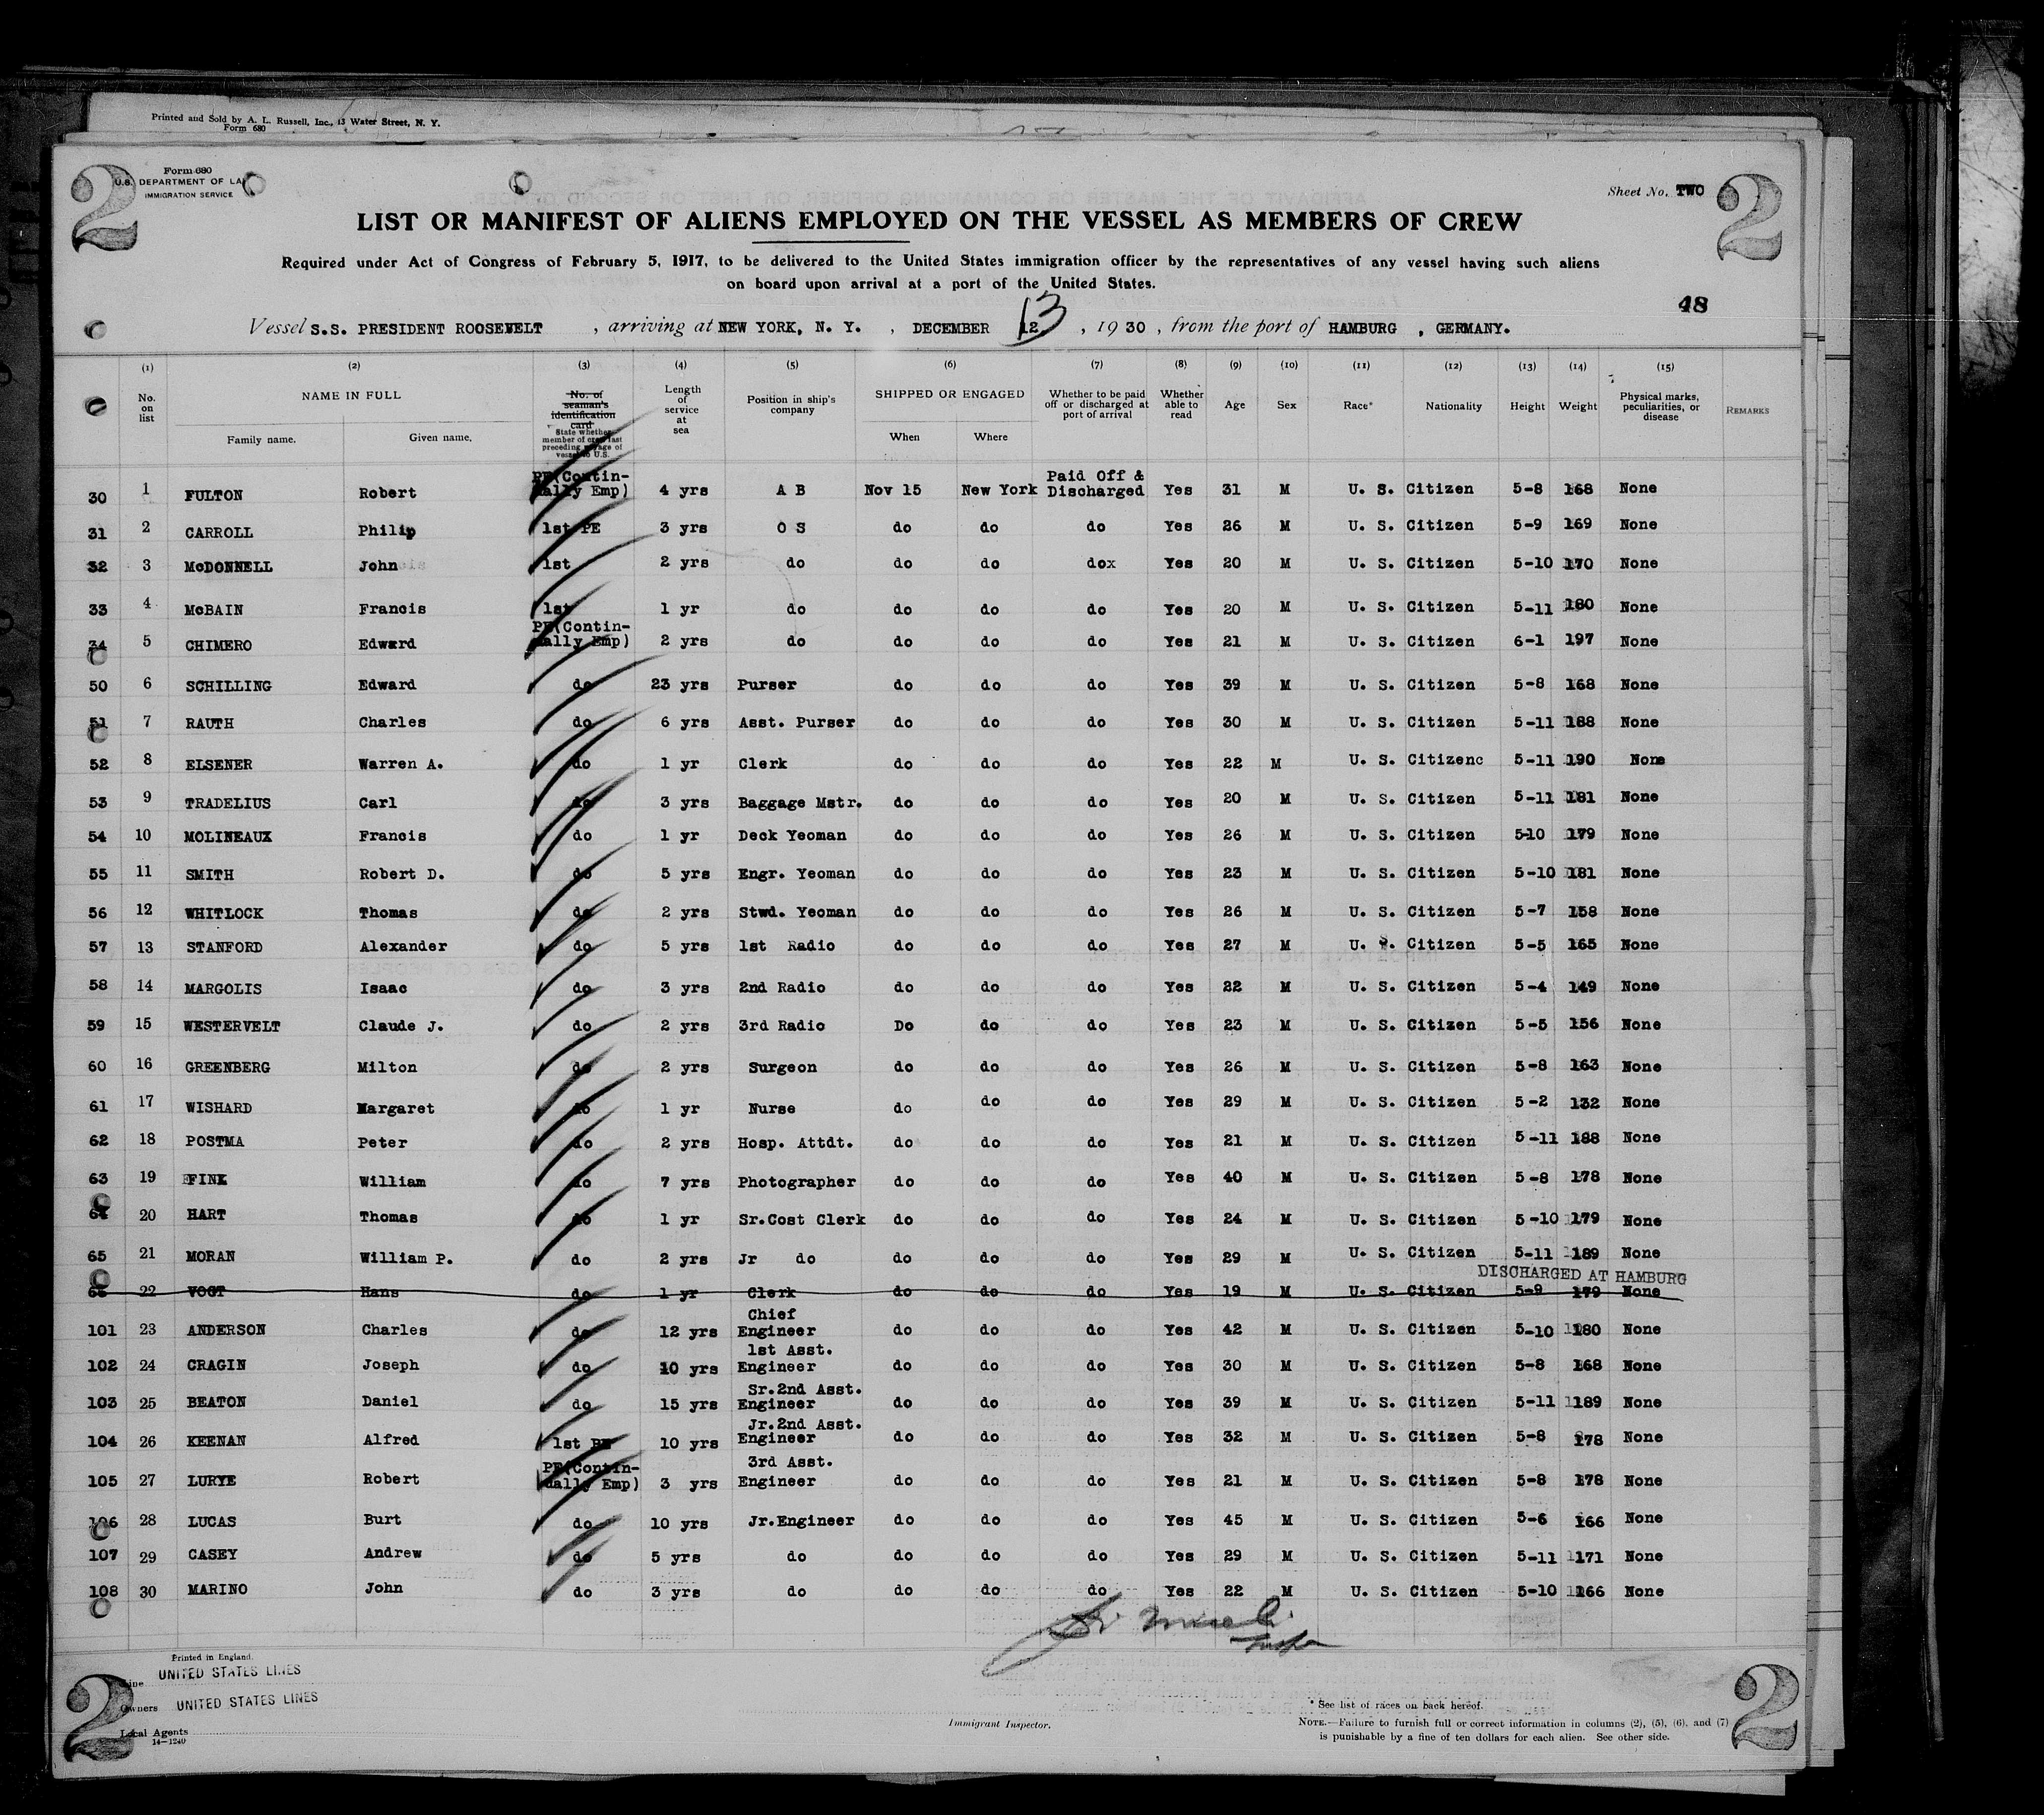 Printed and Sold by A. L. Russell, Inc., 13 Water Street, N. Y.
Form 680
2
Form 680
U.S. DEPARTMENT OF LA
IMMIGRATION SERVICE
Sheet No. TWO
2
LIST OR MANIFEST OF ALIENS EMPLOYED ON THE VESSEL AS MEMBERS OF CREW
Required under Act of Congress of February 5, 1917, to be delivered to the United States immigration officer by the representatives of any vessel having such aliens
on board upon arrival at a port of the United States.
48
Vessel S.S. PRESIDENT ROOSEVELT , arriving at NEW YORK, N. Y. , DECEMBER 12 13 , 19 30 , from the port of HAMBURG , GERMANY.
(1) (2) (3) (4) (5) (6) (7) (8) (9) (10) (11) (12) (13) (14) (15)
No. on list NAME IN FULL Family name. Given name. No. of seaman's identification card State whether member of crew last preceding voyage of vessel to U.S. Length of service at sea Position in ship's company SHIPPED OR ENGAGED When Where Whether to be paid off or discharged at port of arrival Whether able to read Age Sex Race* Nationality Height Weight Physical marks, peculiarities, or disease REMARKS
30 1 FULTON Robert PE(Contin-ually Emp) 4 yrs A B Nov 15 New York Paid Off & Discharged Yes 31 M U. S. Citizen 5-8 168 None
31 2 CARROLL Philip 1st PE 3 yrs O S do do do Yes 26 M U. S. Citizen 5-9 169 None
32 3 McDONNELL John 1st 2 yrs do do do dox Yes 20 M U. S. Citizen 5-10 170 None
33 4 McBAIN Francis 1st 1 yr do do do do Yes 20 M U. S. Citizen 5-11 180 None
34 5 CHIMERO Edward PE(Contin-ually Emp) 2 yrs do do do do Yes 21 M U. S. Citizen 6-1 197 None
50 6 SCHILLING Edward do 23 yrs Purser do do do Yes 39 M U. S. Citizen 5-8 168 None
51 7 RAUTH Charles do 6 yrs Asst. Purser do do do Yes 30 M U. S. Citizen 5-11 188 None
52 8 ELSENER Warren A. do 1 yr Clerk do do do Yes 22 M U. S. Citizenc 5-11 190 None
53 9 TRADELIUS Carl do 3 yrs Baggage Mstr. do do do Yes 20 M U. S. Citizen 5-11 181 None
54 10 MOLINEAUX Francis do 1 yr Deck Yeoman do do do Yes 26 M U. S. Citizen 5-10 179 None
55 11 SMITH Robert D. do 5 yrs Engr. Yeoman do do do Yes 23 M U. S. Citizen 5-10 181 None
56 12 WHITLOCK Thomas do 2 yrs Stwd. Yeoman do do do Yes 26 M U. S. Citizen 5-7 158 None
57 13 STANFORD Alexander do 5 yrs 1st Radio do do do Yes 27 M U. S. Citizen 5-5 165 None
58 14 MARGOLIS Isaac do 3 yrs 2nd Radio do do do Yes 22 M U. S. Citizen 5-4 149 None
59 15 WESTERVELT Claude J. do 2 yrs 3rd Radio Do do do Yes 23 M U. S. Citizen 5-5 156 None
60 16 GREENBERG Milton do 2 yrs Surgeon do do do Yes 26 M U. S. Citizen 5-8 163 None
61 17 WISHARD Margaret do 1 yr Nurse do do do Yes 29 M U. S. Citizen 5-2 132 None
62 18 POSTMA Peter do 2 yrs Hosp. Attdt. do do do Yes 21 M U. S. Citizen 5-11 188 None
63 19 FINK William do 7 yrs Photographer do do do Yes 40 M U. S. Citizen 5-8 178 None
64 20 HART Thomas do 1 yr Sr.Cost Clerk do do do Yes 24 M U. S. Citizen 5-10 179 None
65 21 MORAN William P. do 2 yrs Jr do do do do Yes 29 M U. S. Citizen 5-11 189 None
DISCHARGED AT HAMBURG
66 22 VOGT Hans do 1 yr Clerk do do do Yes 19 M U. S. Citizen 5-9 179 None
101 23 ANDERSON Charles do 12 yrs Chief Engineer do do do Yes 42 M U. S. Citizen 5-10 180 None
102 24 CRAGIN Joseph do 10 yrs 1st Asst. Engineer do do do Yes 30 M U. S. Citizen 5-8 168 None
103 25 BEATON Daniel do 15 yrs Sr.2nd Asst. Engineer do do do Yes 39 M U. S. Citizen 5-11 189 None
104 26 KEENAN Alfred 1st PE 10 yrs Jr.2nd Asst. Engineer do do do Yes 32 M U. S. Citizen 5-8 178 None
105 27 LURYE Robert PE(Contin-ually Emp) 3 yrs 3rd Asst. Engineer do do do Yes 21 M U. S. Citizen 5-8 178 None
106 28 LUCAS Burt do 10 yrs Jr.Engineer do do do Yes 45 M U. S. Citizen 5-6 166 None
107 29 CASEY Andrew do 5 yrs do do do do Yes 29 M U. S. Citizen 5-11 171 None
108 30 MARINO John do 3 yrs do do do do Yes 22 M U. S. Citizen 5-10 166 None
Printed in England.
Line UNITED STATES LINES
Owners UNITED STATES LINES
Local Agents
14—1240
2
Immigrant Inspector.
* See list of races on back hereof.
NOTE.—Failure to furnish full or correct information in columns (2), (5), (6), and (7)
is punishable by a fine of ten dollars for each alien. See other side.
2